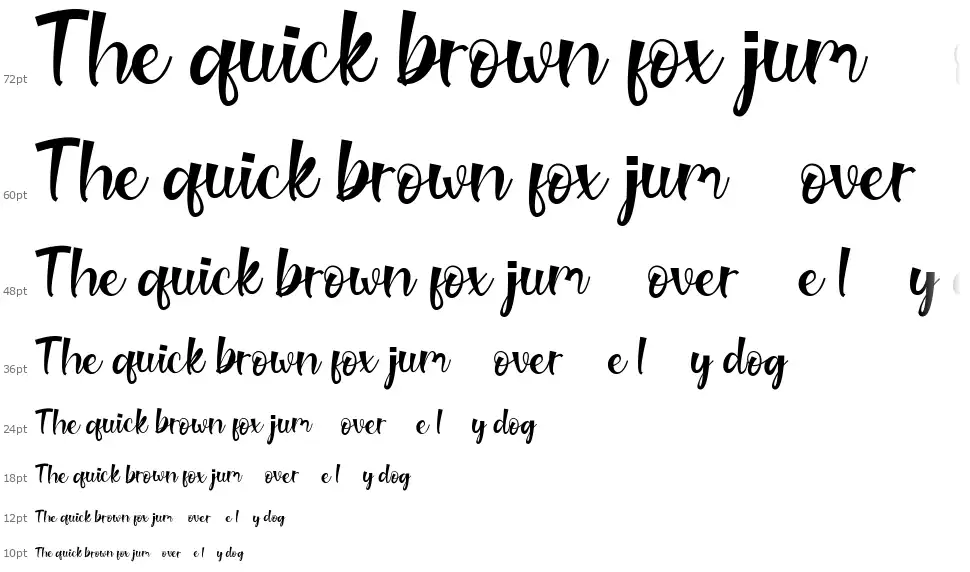 72pt The quick brown fox jum
60pt The quick brown fox jum over
48pt The quick brown fox jum over e l y
36pt The quick brown fox jum over e l y dog
24pt The quick brown fox jum over e l y dog
18pt The quick brown fox jum over e l y dog
12pt The quick brown fox jum over e l y dog
10pt The quick brown fox jum over e l y dog